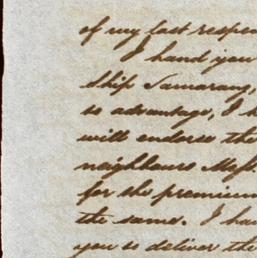 of my last respe
I hand you
Ship Samarang,
to advantage, I h
will endorse the
neighbours Mess.
for the premium
the same. I ha
you to deliver the